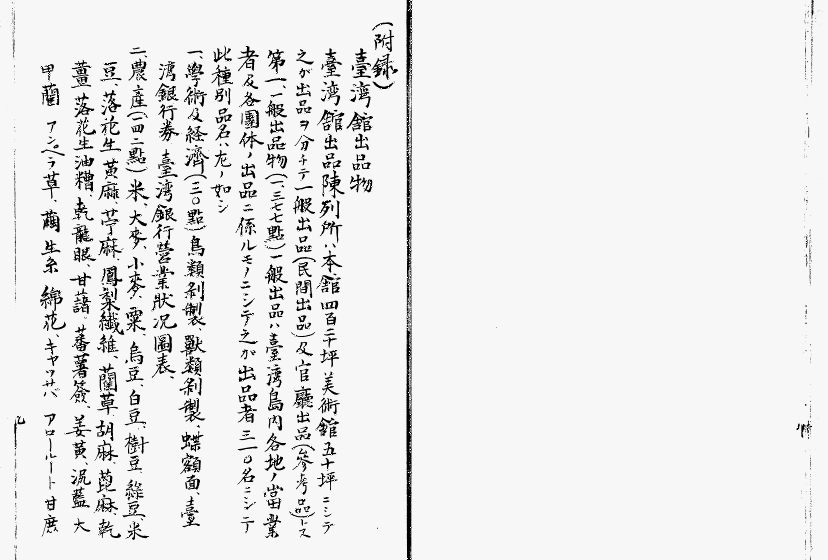 (附録)
臺湾館出品物
臺湾館出品陳列所ハ本館四百二十坪美術館五十坪ニシテ
之が出品ヲ分チテ一般出品(民間出品)及官廳出品(參考品)トス
第一、一般出品物(一、三七七點)一般出品ハ臺湾島内各地ノ當業
者及各團体ノ出品ニ係ルモノニシテ之が出品者三一〇名ニシテ
此種別品名ハ左ノ如シ
一、學術及経濟(三〇點)鳥類剥製、獸類剥製、蝶額面、臺
湾銀行券、臺湾銀行營業狀況圖表、
二、農産(一四二點)米、大麥、小麥、粟、烏豆、白豆、樹豆、綠豆、米
豆、落花生、黄麻、苧麻、鳳梨纖維、藺草、胡麻、蓖麻、乾
薑、落花生油糟、乾龍眼、甘藷、蕃薯簽、姜黄、泥藍、大
甲藺、アンペラ草、繭、生糸、綿花、キャッサバ、アロールート、甘蔗